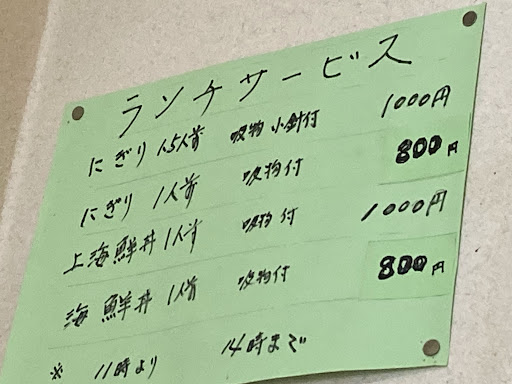 ランチサービス
にぎり 1.5人前 吸物 小鉢付 1000円
にぎり 1人前 吸物付 800円
上海鮮丼 1人前 吸物付 1000円
海鮮丼 1人前 吸物付 800円
※ 11時より 14時まで